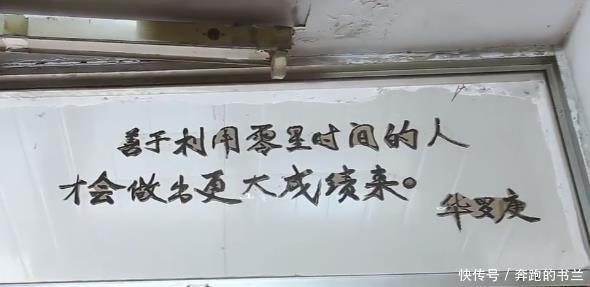 善于利用零星时间的人
才会做出更大成绩来。
华罗庚
快传号 / 奔跑的书兰